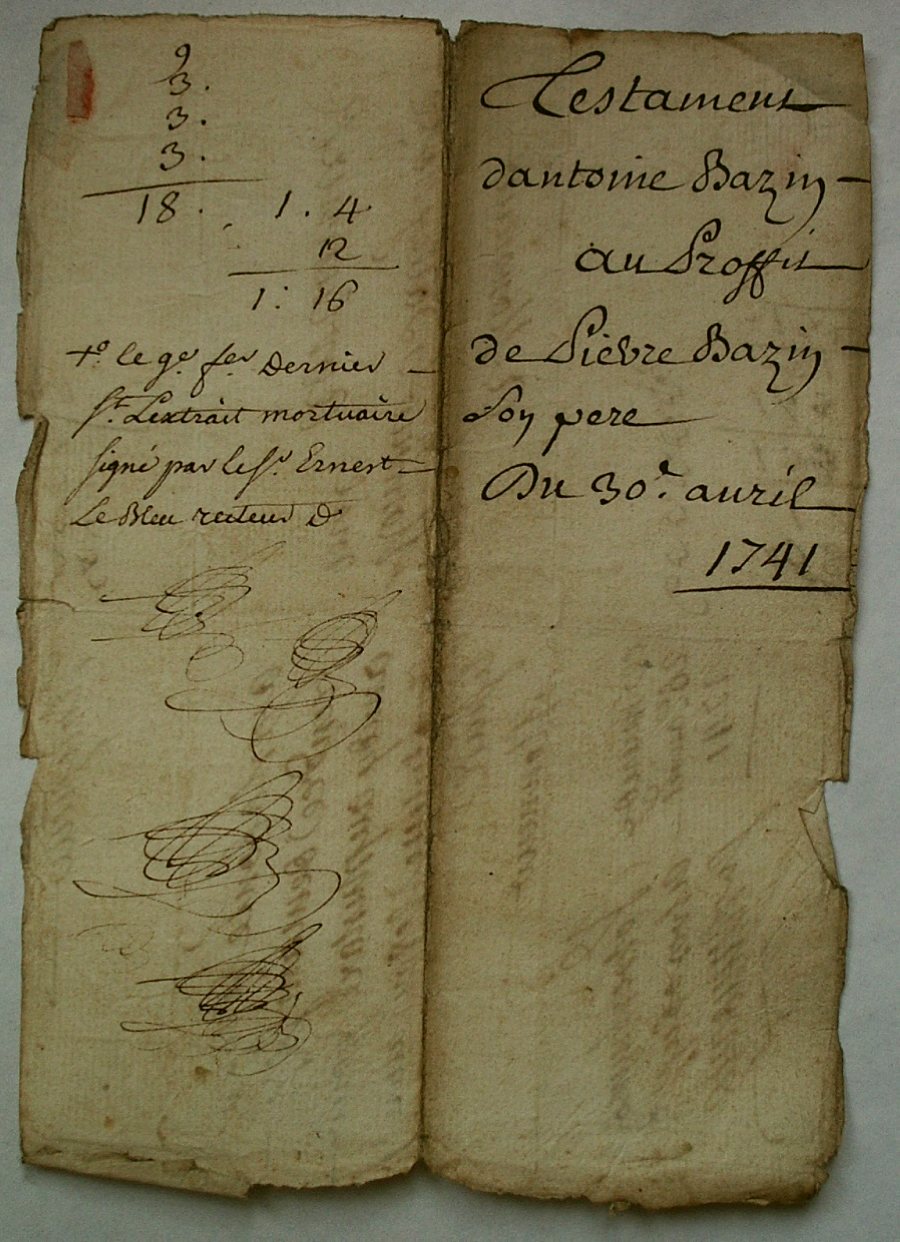 9
3.
3.
3.
18. 1. 4
12
1: 16
+° le 9e fer Dernier
st. Lextrait mortuaire
signé par le sr. Ernest
Le Bleu recteur
Testament
dantoine Bazin
au Proffit
de Pièvre Bazin
son pere
Du 30e. auril
1741